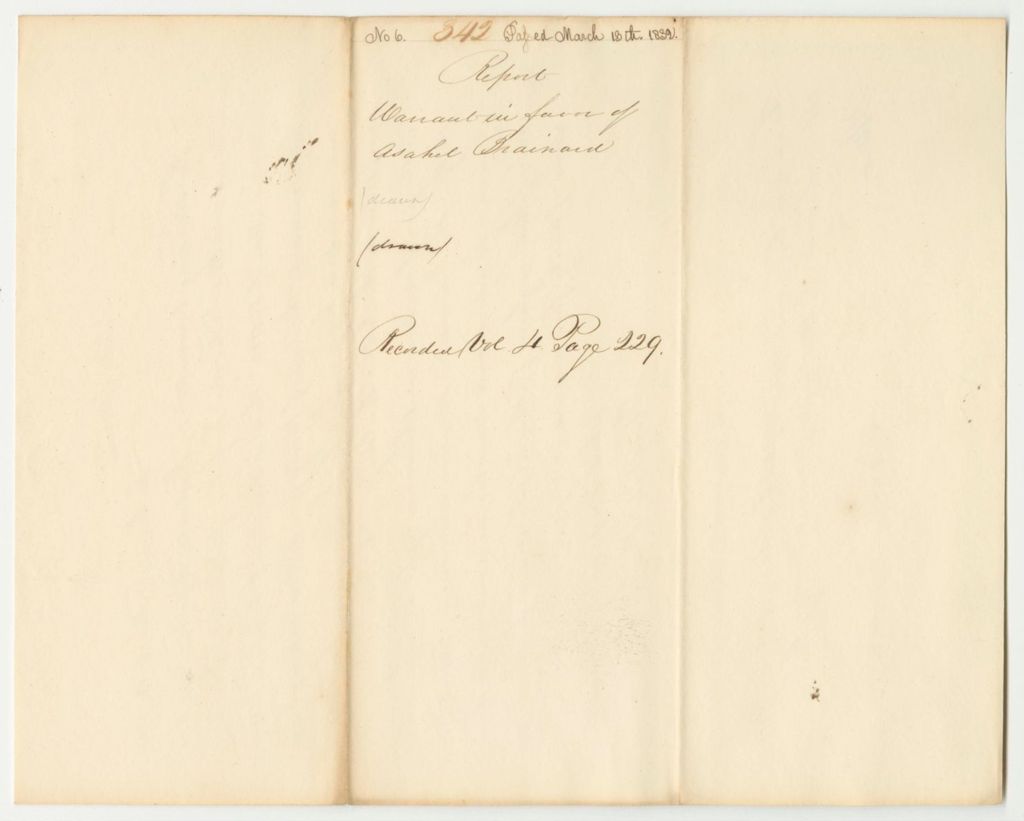 No 6. 342 Passed March 18th. 1832.
Report
Warrant in favor of
Asahel Brainard
(drawn)
(drawn)
Recorded Vol 4 Page 229.